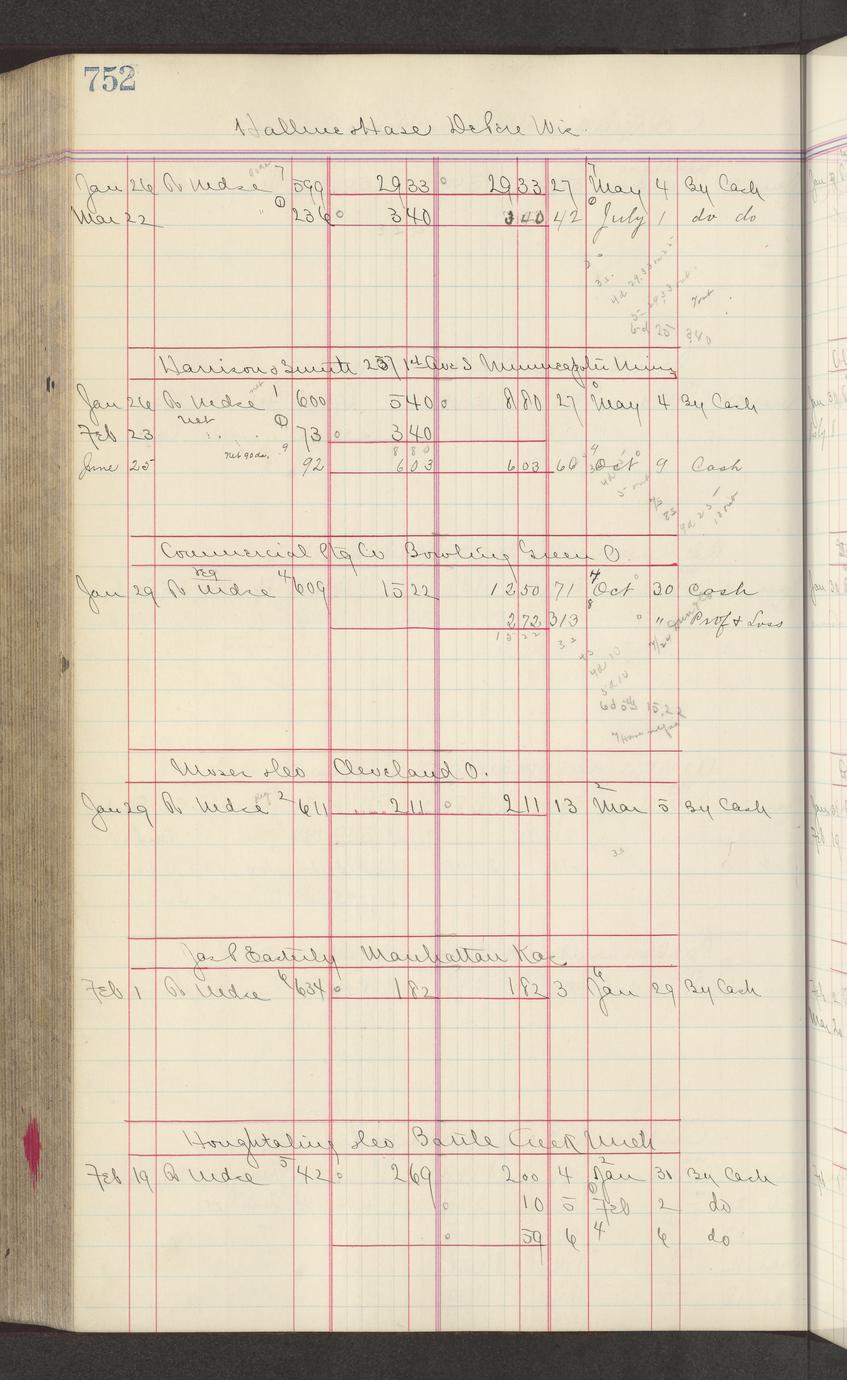 752
Halline & Hase DePere Wis.
Jan 26 To Mdse 7 599 29 33 29 33 27 7 May 4 By Cash
Mar 22 " 1 236 3 40 3 40 42 July 1 do do
7 out
6d 25 3.40
Harrison & Smith 257 1st Ave S Minneapolis Minn
Jan 26 To Mdse net 1 600 5 40 8 80 27 May 4 By Cash
Feb 23 Net " " 1 73 3 40
8 80
June 25 Net goods. 9 92 6 03 6 03 60 4 Oct 9 Cash
Commercial Ptg Co Bowling Green O.
Jan 29 To reg Mdse 4 609 15 22 12 50 71 4 Oct 30 Cash
2 72 313 8 " Prof & Loss
15 22
4d 10
5d 10
6d 15.22
Moser Geo Cleveland O.
Jan 29 To Mdse reg 2 611 2 11 2 11 13 2 Mar 5 By Cash
3s
Jas P Easterly Manhattan Kas
Feb 1 To Mdse 6 634 1 82 1 82 3 6 Jan 29 By Cash
Houghtaling Geo Battle Creek Mich
Feb 19 To Mdse 5 42 2 69 2 00 4 2 Jan 31 By Cash
10 5 Feb 2 do
59 6 4 6 do